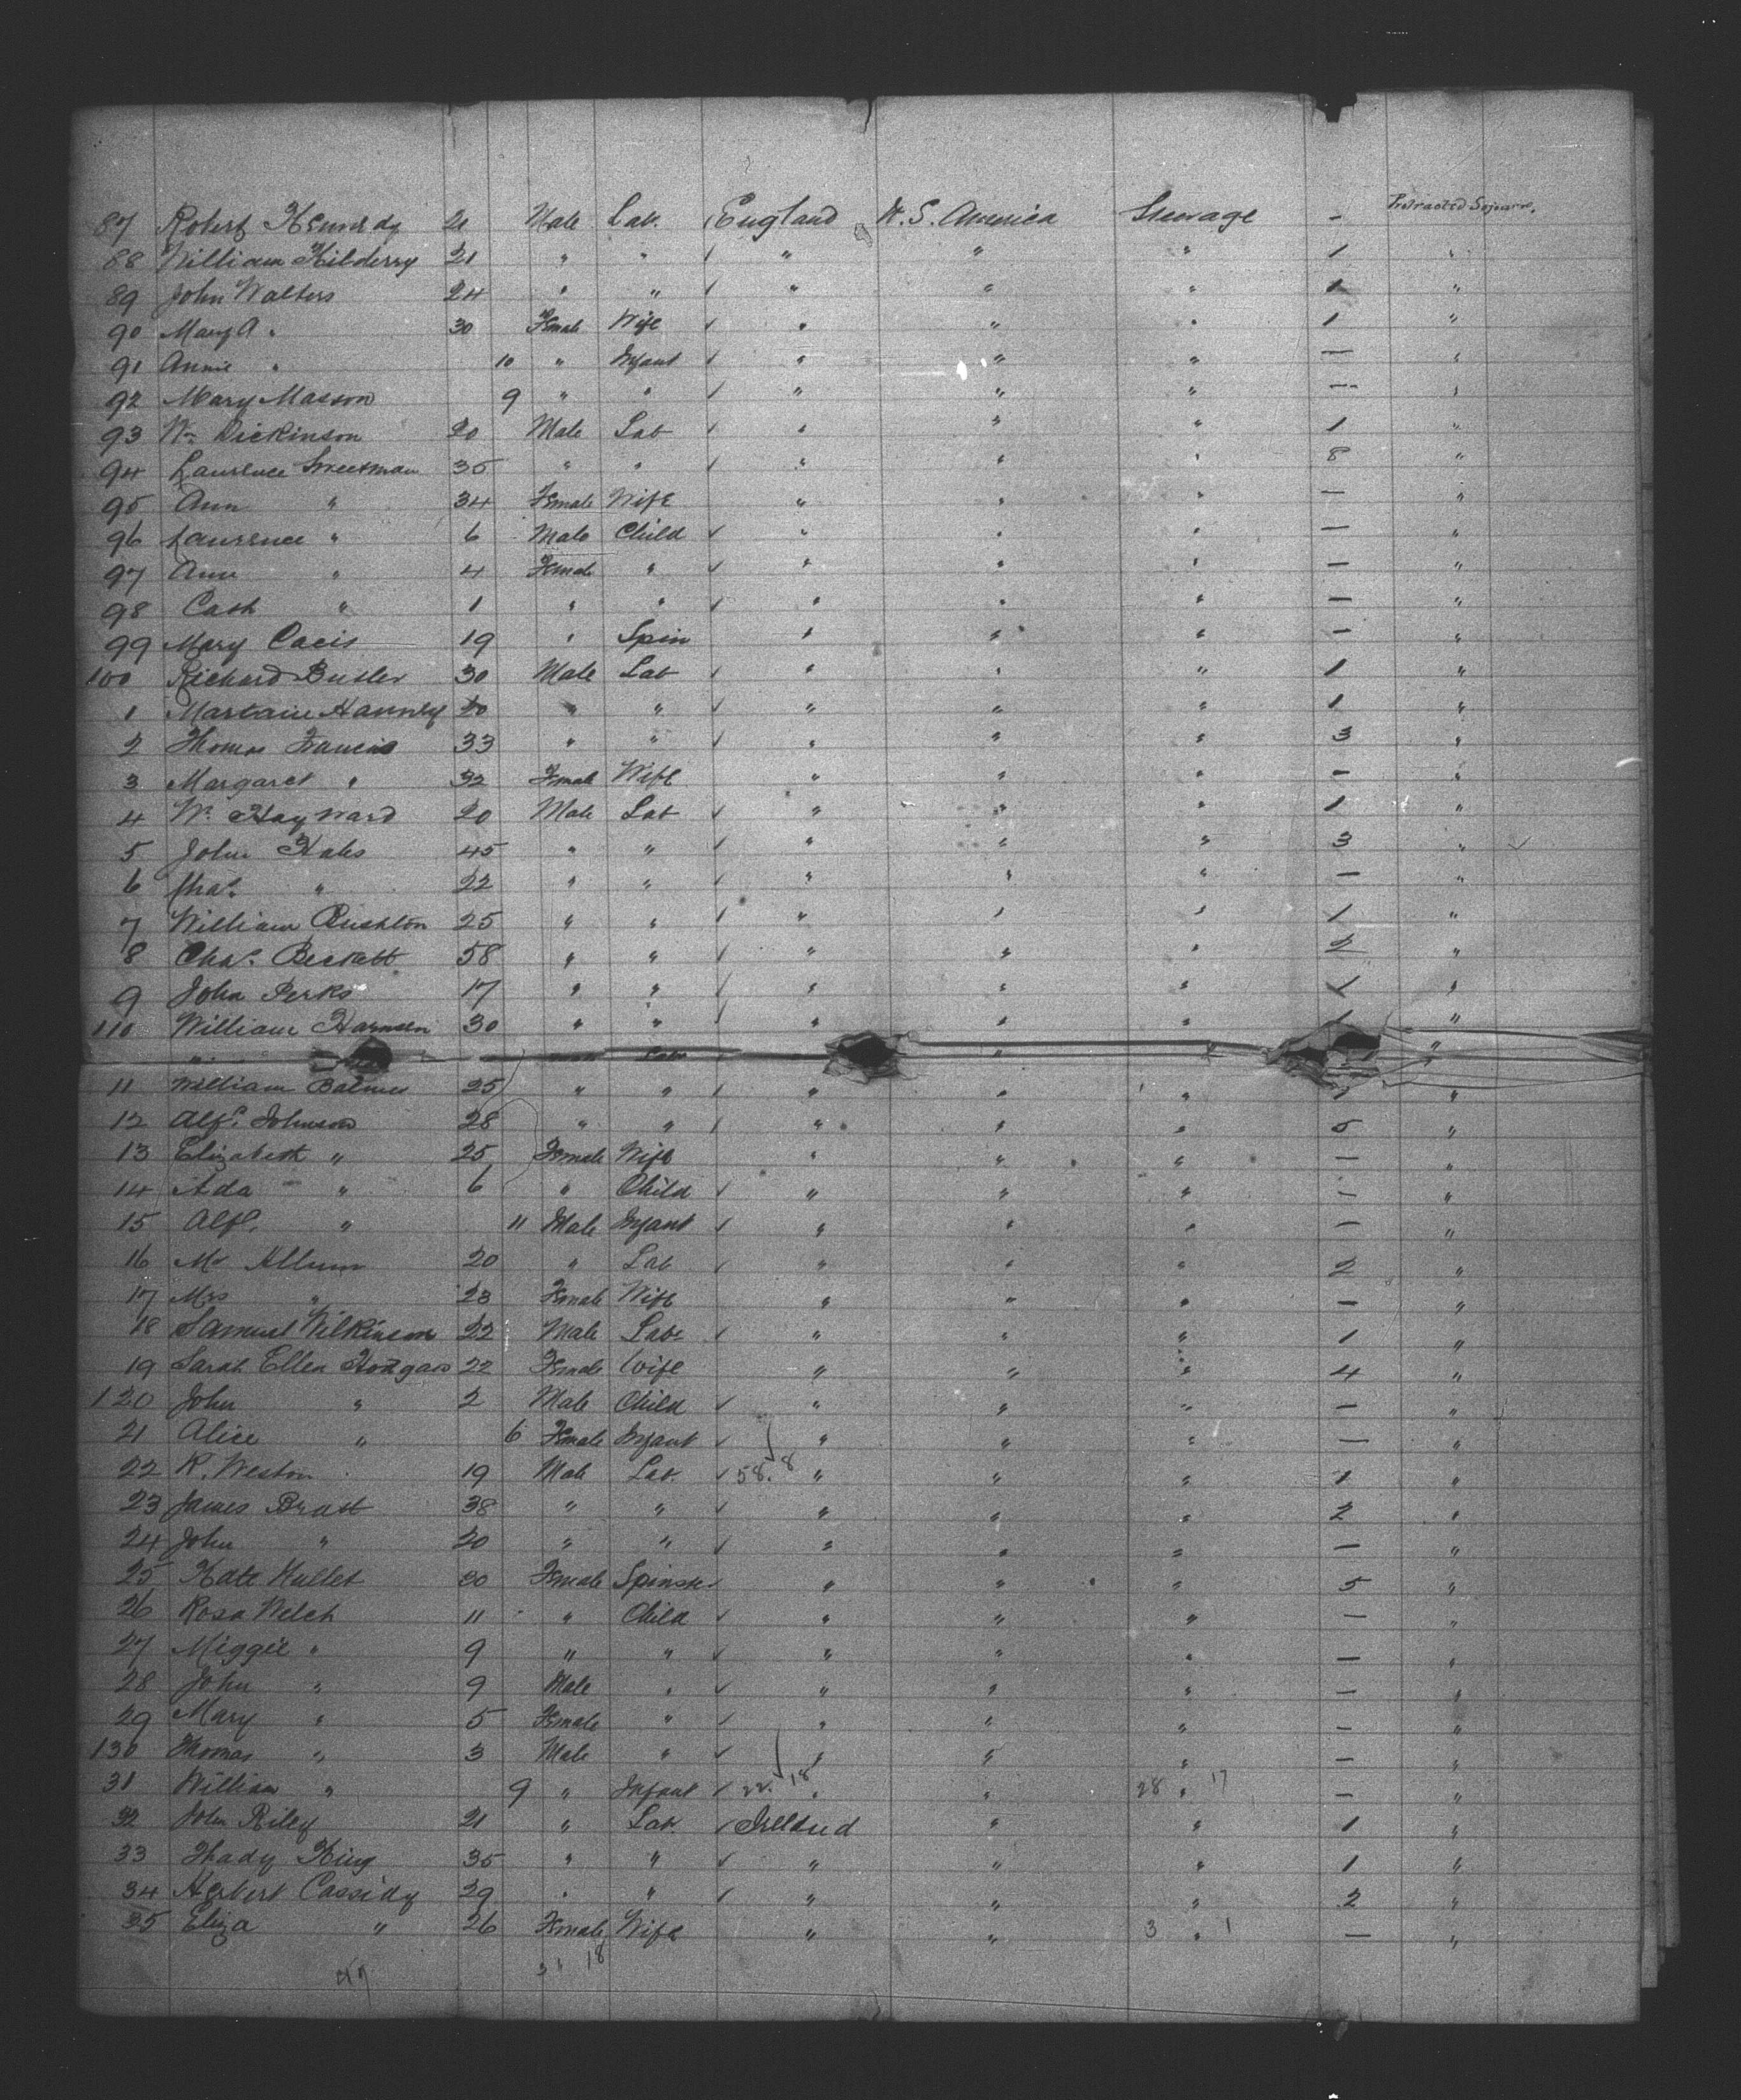 87 Robert Kennedy 21 Male Lab. ✓ England U. S. America Steerage – Protracted Sojourn.
88 William Kilderry 21 " " ✓ " " " 1 "
89 John Walters 24 " " ✓ " " " 1 "
90 Mary A " 30 Female Wife ✓ " " " 1 "
91 Annie " 10 " Infant ✓ " " " — "
92 Mary Masson 9 " " ✓ " " " — "
93 Wm Dickinson 20 Male Lab ✓ " " " 1 "
94 Laurence Sweetman 35 " " ✓ " " " 8 "
95 Ann " 34 Female Wife " " " — "
96 Laurence " 6 Male Child ✓ " " " — "
97 Ann " 4 Female " ✓ " " " — "
98 Cath " 1 " " ✓ " " " — "
99 Mary 19 " Spin " " " — "
100 Richard Butler 30 Male Lab ✓ " " " 1 "
1 20 " " ✓ " " " 1 "
2 Thomas Francis 33 " " ✓ " " " 3 "
3 Margaret " 32 Female Wife " " " – "
4 Wm Hayward 20 Male Lab ✓ " " " 1 "
5 John Hales 45 " " ✓ " " " 3 " ✓
6 Chas. " 22 " " ✓ " " " — "
7 William Rushton 25 " " ✓ " " " 1 "
8 Chas. Beckett 58 " " ✓ " " " 2 "
9 John Perks 17 " " ✓ " " " 1 "
110 William 30 " " ✓ " " " 1 "
11 William Balmer 25 " " ✓ " " " "
12 Alfd. Johnson 28 " " ✓ " " " 5 "
13 Elizabeth " 25 Female Wife " " " — "
14 Ada " 6 " Child ✓ " " " — "
15 Alfd. " 11 Male Infant ✓ " " " — "
16 Mr Allum 20 " Lab ✓ " " " 2 "
17 Mrs " 23 Female Wife " " " — "
18 Samuel Wilkinson 22 Male Lab. ✓ " " " 1 "
19 Sarah Ellen 22 Female Wife " " " 4 "
120 John " 2 Male Child ✓ " " " — "
21 Alice " 6 Female Infant ✓ " " " — "
22 R. Weston 19 Male Lab. ✓ 58. 8 " " " 1 "
23 James Bratt 38 " " ✓ " " " 2 "
24 John " 20 " " ✓ " " " — "
25 Kate Hullet 30 Female Spinster " " " 5 "
26 Rosa Welch 11 " Child ✓ " " " — "
27 Miggie " 9 " " ✓ " " " — "
28 John " 9 Male " ✓ " " " — "
29 Mary " 5 Female " ✓ " " " — "
130 Thomas " 3 Male " ✓ " " " — "
31 William " 9 " Infant ✓ 22. 18 " " 28 " 17 — "
32 John Riley 21 " Lab. ✓ Ireland " " 1 "
33 Thady King 35 " " ✓ " " " 1 "
34 Herbert Cassidy 29 " " ✓ " " " 2 "
35 Eliza " 26 Female Wife " " 3 " 1 — "
18